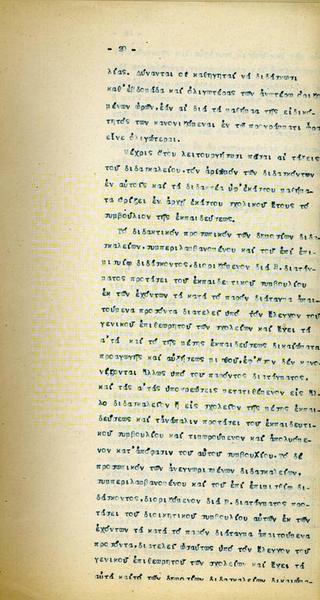 - 20 -
λίας. Δύνανται οἱ καθηγηταί νά διδάσκωσι
καθ' ἑβδομάδα καί ὀλιγωτέρας τῶν ἀνωτέρω ὁριζο
μένων ὡρῶν, ἐάν αἱ διά τά μαθήματα τῆς εἰδικό-
τητός των κανονιζόμεναι ἐν τῷ προγράμματι ὧραι
εἶνε ὀλιγώτεραι.
Μέχρις ὅτου λειτουργήσωσι πᾶσαι αἱ τάξεις
τοῦ διδασκαλείου, τόν ἀριθμόν τῶν διδασκόντων
ἐν αὐτοῖς καί τά διδακτέα ὑφ' ἑκάστου μαθήμα-
τα ὁρίζει ἐν ἀρχῇ ἑκάστου σχολικοῦ ἔτους τό
συμβούλιον τῆς ἐκπαιδεύσεως.
Τό διδακτικόν προσωπικόν τῶν δημοσίων διδα-
σκαλείων, συμπεριλαμβανομένου καί τοῦ ἐπί ἐπι-
μισθίῳ διδάσκοντος, διοριζόμενον διά Β. διατάγ-
ματος προτάσει τοῦ ἐκπαιδευτικοῦ συμβουλίου
ἐκ τῶν ἐχόντων τά κατά τό παρόν διάταγμα ἀπαι-
τούμενα προσόντα διατελεῖ ὑπό τόν ἔλεγχον τοῦ
γενικοῦ ἐπιθεωρητοῦ τῶν σχολείων καί ἔχει τά
αὐτά καί τό τῆς μέσης ἐκπαιδεύσεως δικαιώματα
προαγωγῆς καί αὐξήσεως μισθοῦ, ἐφ' ὅσον δέν κανο-
νίζονται ἄλλως ὑπό τοῦ παρόντος διατάγματος,
καί τάς αὐτάς ὑποχρεώσεις μετατιθέμενον εἰς ἄλ-
λο διδασκαλεῖον ἤ εἰς σχολεῖον τῆς μέσης ἐκπαι-
δεύσεως καί τἀνάπαλιν προτάσει τοῦ ἐκπαιδευτι-
κοῦ συμβουλίου καί τιμωρούμενον καί ἀπολυόμε-
νον κατ' ἀπόφασιν τοῦ αὐτοῦ συμβουλίου. Τό δέ
προσωπικόν τῶν ἀνεγνωρισμένων διδασκαλείων,
συμπεριλαμβανομένου καί τοῦ ἐπί ἐπιμισθίῳ δι-
δάσκοντος, διοριζόμενον διά Β. διατάγματος προ-
τάσει τοῦ διοικητικοῦ συμβουλίου αὐτῶν ἐκ τῶν
ἐχόντων τά κατά τό παρόν διάταγμα ἀπαιτούμενα
προσόντα, διατελεῖ ὡσαύτως ὑπό τόν ἔλεγχον τοῦ
γενικοῦ ἐπιθεωρητοῦ τῶν σχολείων καί ἔχει τά
αὐτά καί τό τῶν δημοσίων διδασκαλείων δικαιώμα-